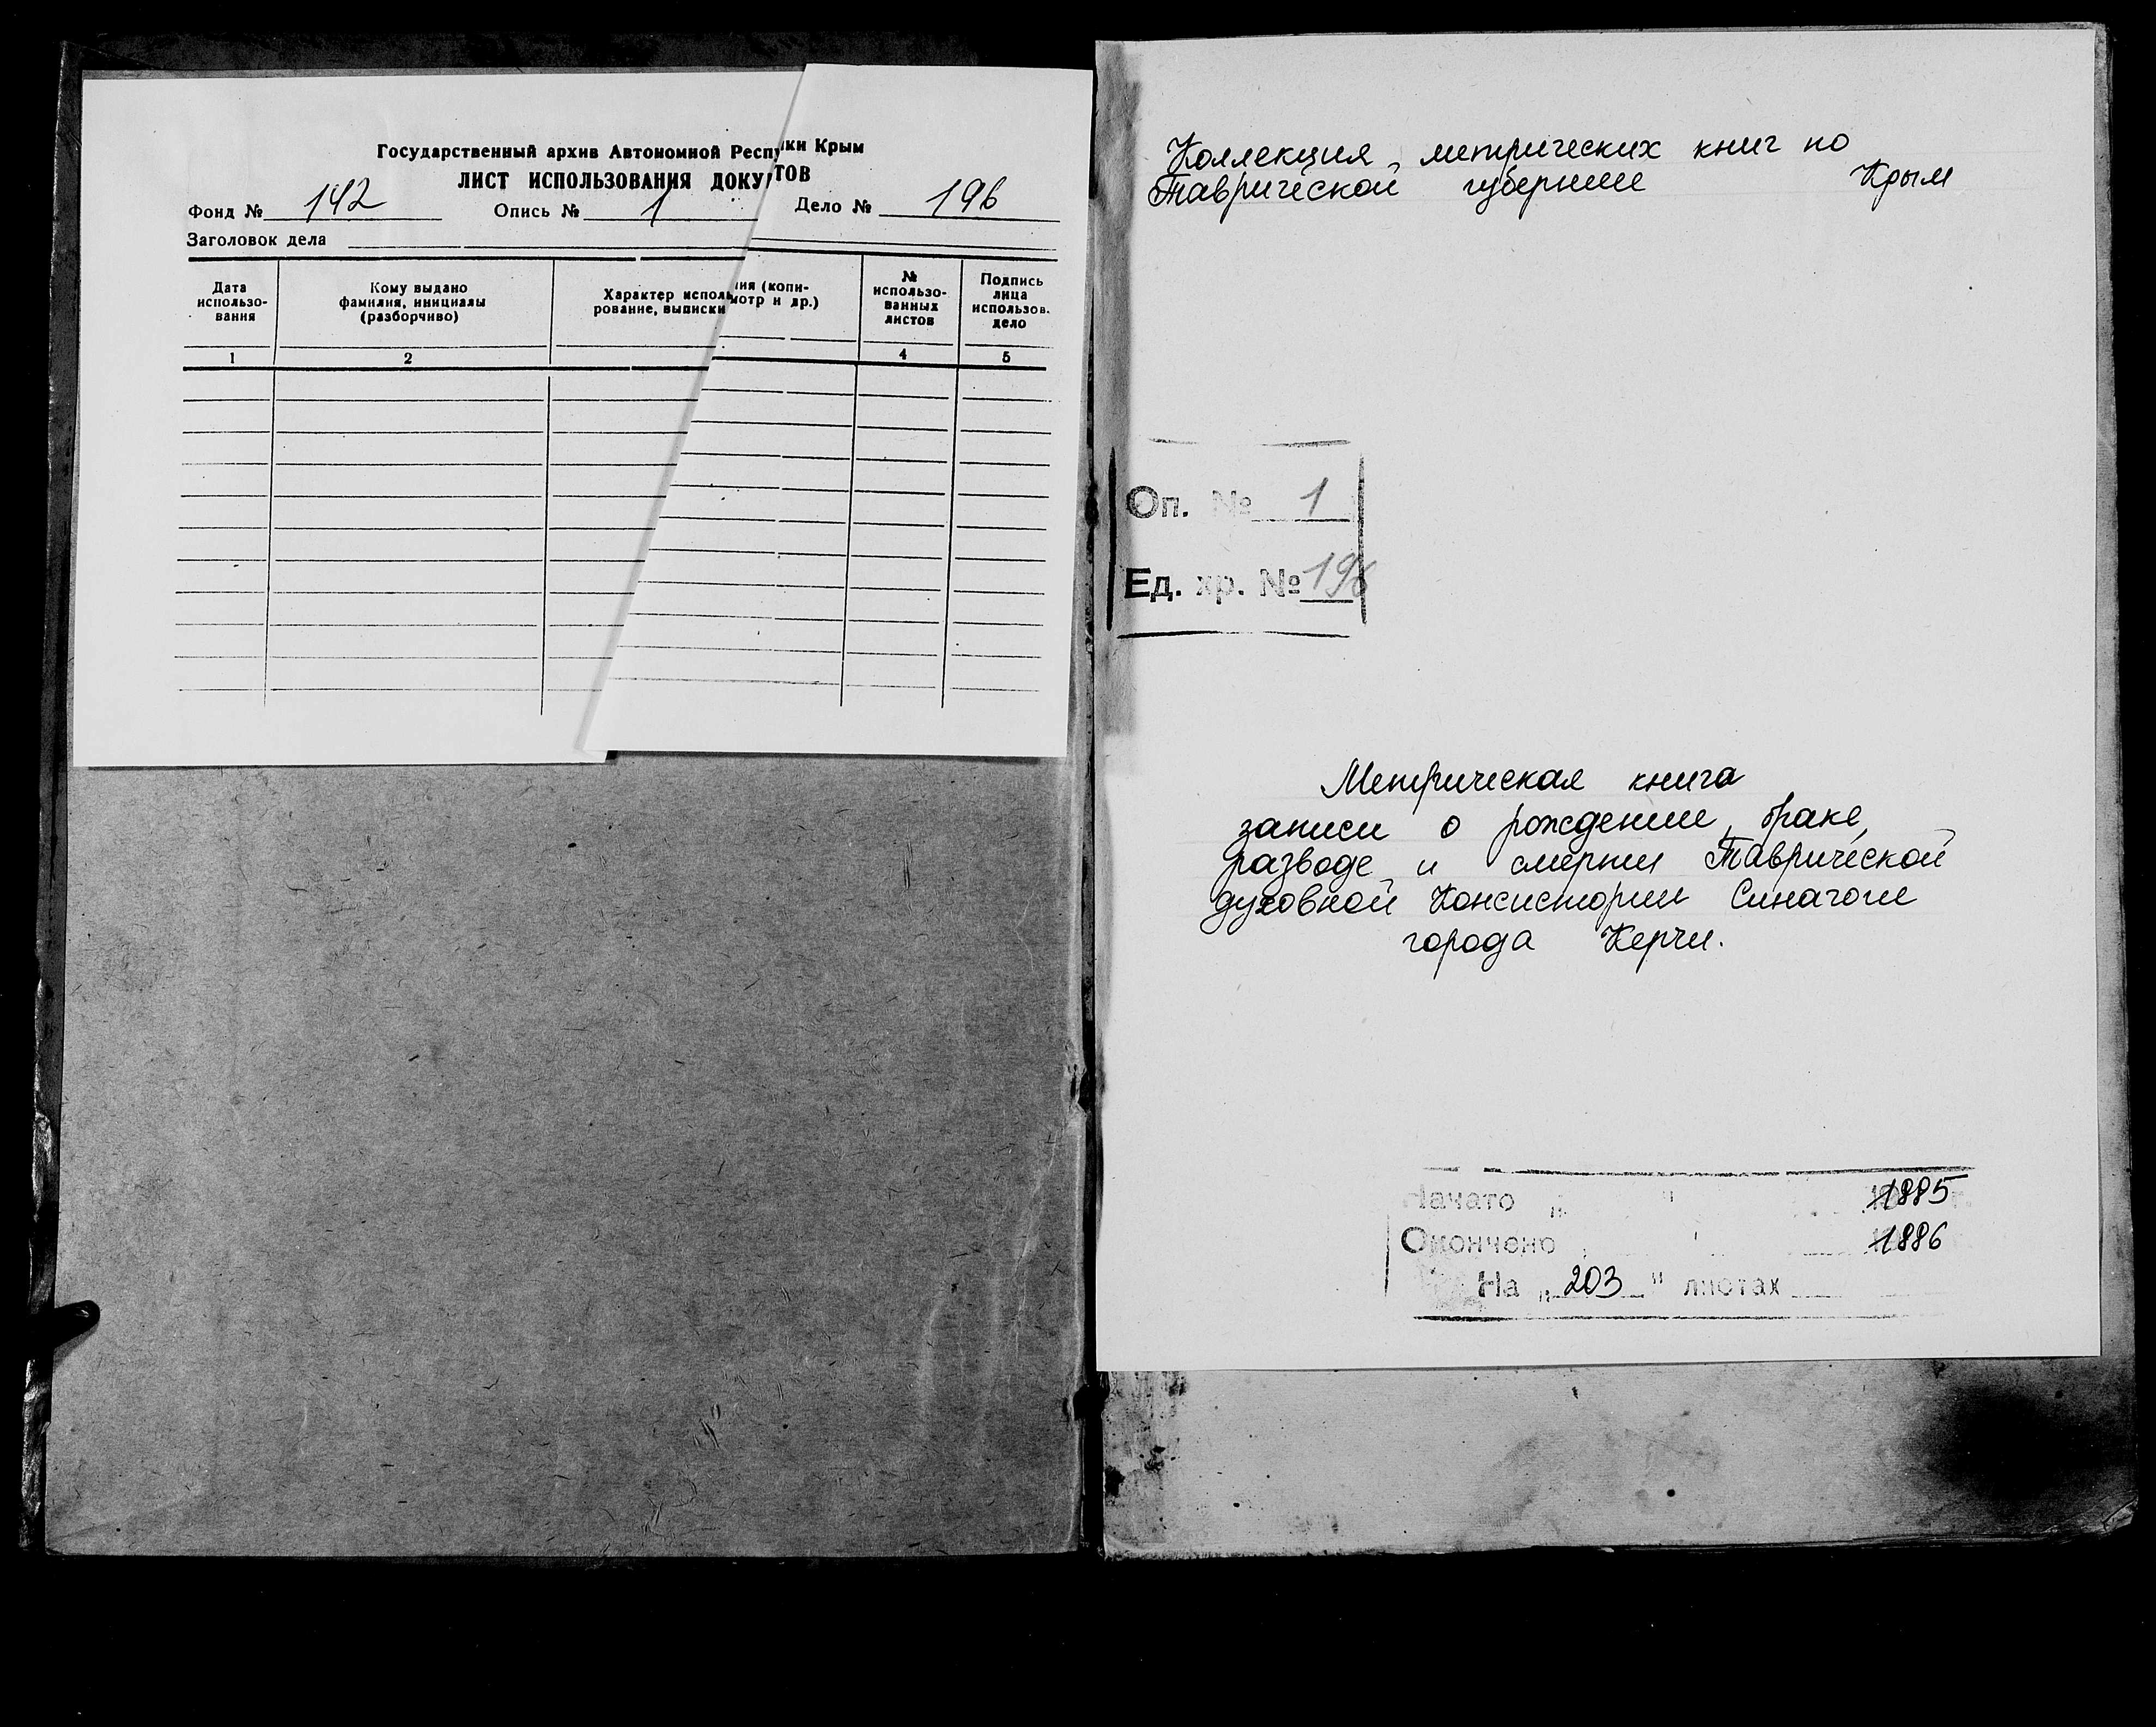 Государственный архив Автономной Респу ики Крым
ЛИСТ ИСПОЛЬЗОВАНИЯ ДОКУ ТОВ
Фонд № 142 Опись № 1 Дело № 196
Заголовок дела
Дата использо-вания
Кому выдано фамилия, инициалы (разборчиво)
Характер исполь ния (копи-
рование, выписки мотр и др.)
№ использо-ванных листов
Подпись лица использов. дело
1 2 4 5
Коллекция метрических книг по
Таврической губернии Крым
Оп. № 1
Ед. хр. № 196
Метрическая книга
записи о рождении, браке,
разводе и смерти Таврической
духовной Консистории Синагоги
города Керчи.
Начато " " 1885
Окончено 1886
На "203" листах